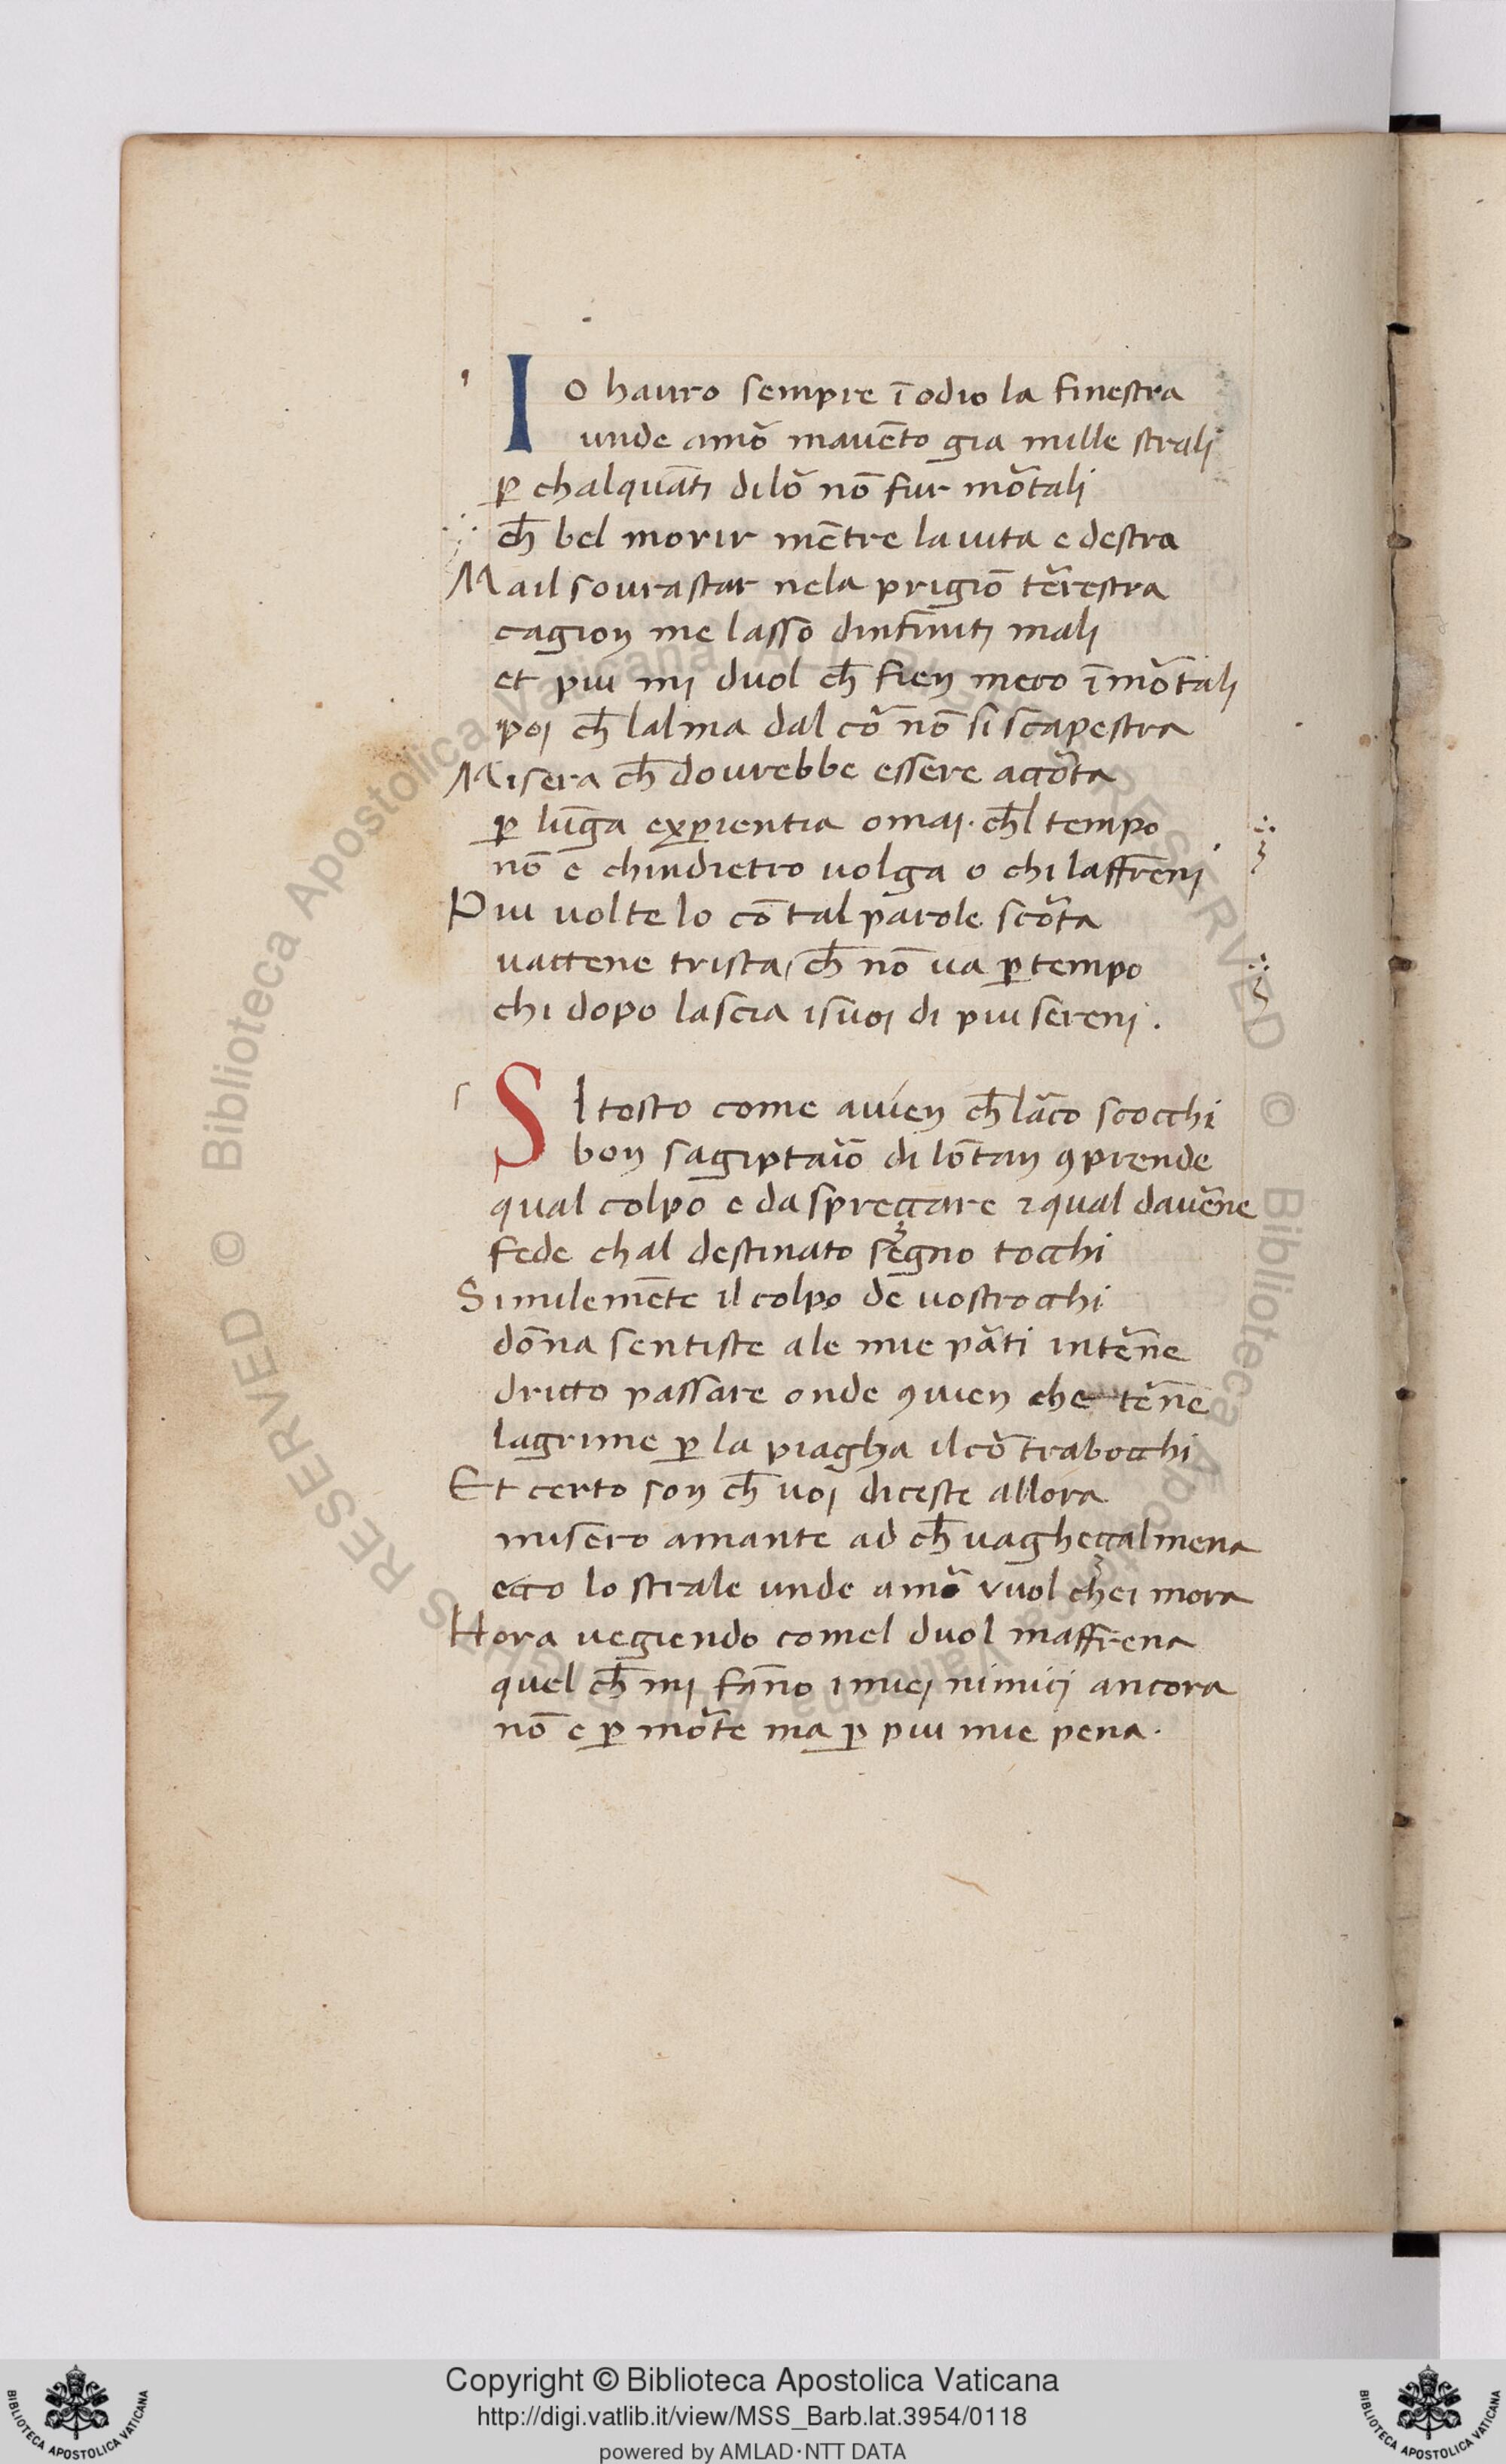 Io hauro sempre ī odio la finestra
unde amõ mauēto gia mille strali
ꝑ chalquātj di lõ nō fur mõtalj
ch̄ bel morir mētre la uita e destra
Ma il sourastar nela prigiō tẽrestra
cagion me lasso dinfinitj malj
et piu mj duol ch̄ fien meco īmõtalj
poj ch̄ lalma dal cõ nō si scapestra
Misera ch̄ dourebbe essere accõta
ꝑ lūga exꝑientia omaj. ch̄l tempo
nō e chindietro uolga o chi laffrenj
Piu uolte lo cō tal parole scõta
uattene trista, ch̄ nō ua ꝑ tempo
chi dopo lascia i suoj di piu serenj.
SI tosto come auien ch̄ lãco scocchi
bon sagiptaiõ di lōtan ꝯprende
qual colpo e da spreççare ⁊ qual dauẽne
fede chal destinato segno tocchi
Similemēte il colpo de uostrocchi
dōna sentiste a le mie pãti intẽne
dritto passare onde ꝯuien che tẽne
lagrime ꝑ la piagha il cõ trabocchi
Et certo son ch̄ uoj diceste allora
misero amante ad ch̄ uagheççal mena
ecco lo strale unde amõ vuol chei mora
Hora uegiendo comel duol maffrena
quel ch̄ mj fāno i miej nimicj ancora
nō e ꝑ mõte ma ꝑ piu mie pena.
© Biblioteca Apostolica Vaticana ALL RIGHTS RESERVED
© Biblioteca Apostolica Vaticana ALL RIGHTS RESERVED
Copyright © Biblioteca Apostolica Vaticana
http://digi.vatlib.it/view/MSS_Barb.lat.3954/0118
powered by AMLAD·NTT DATA
BIBLIOTECA APOSTOLICA VATICANA
BIBLIOTECA APOSTOLICA VATICANA